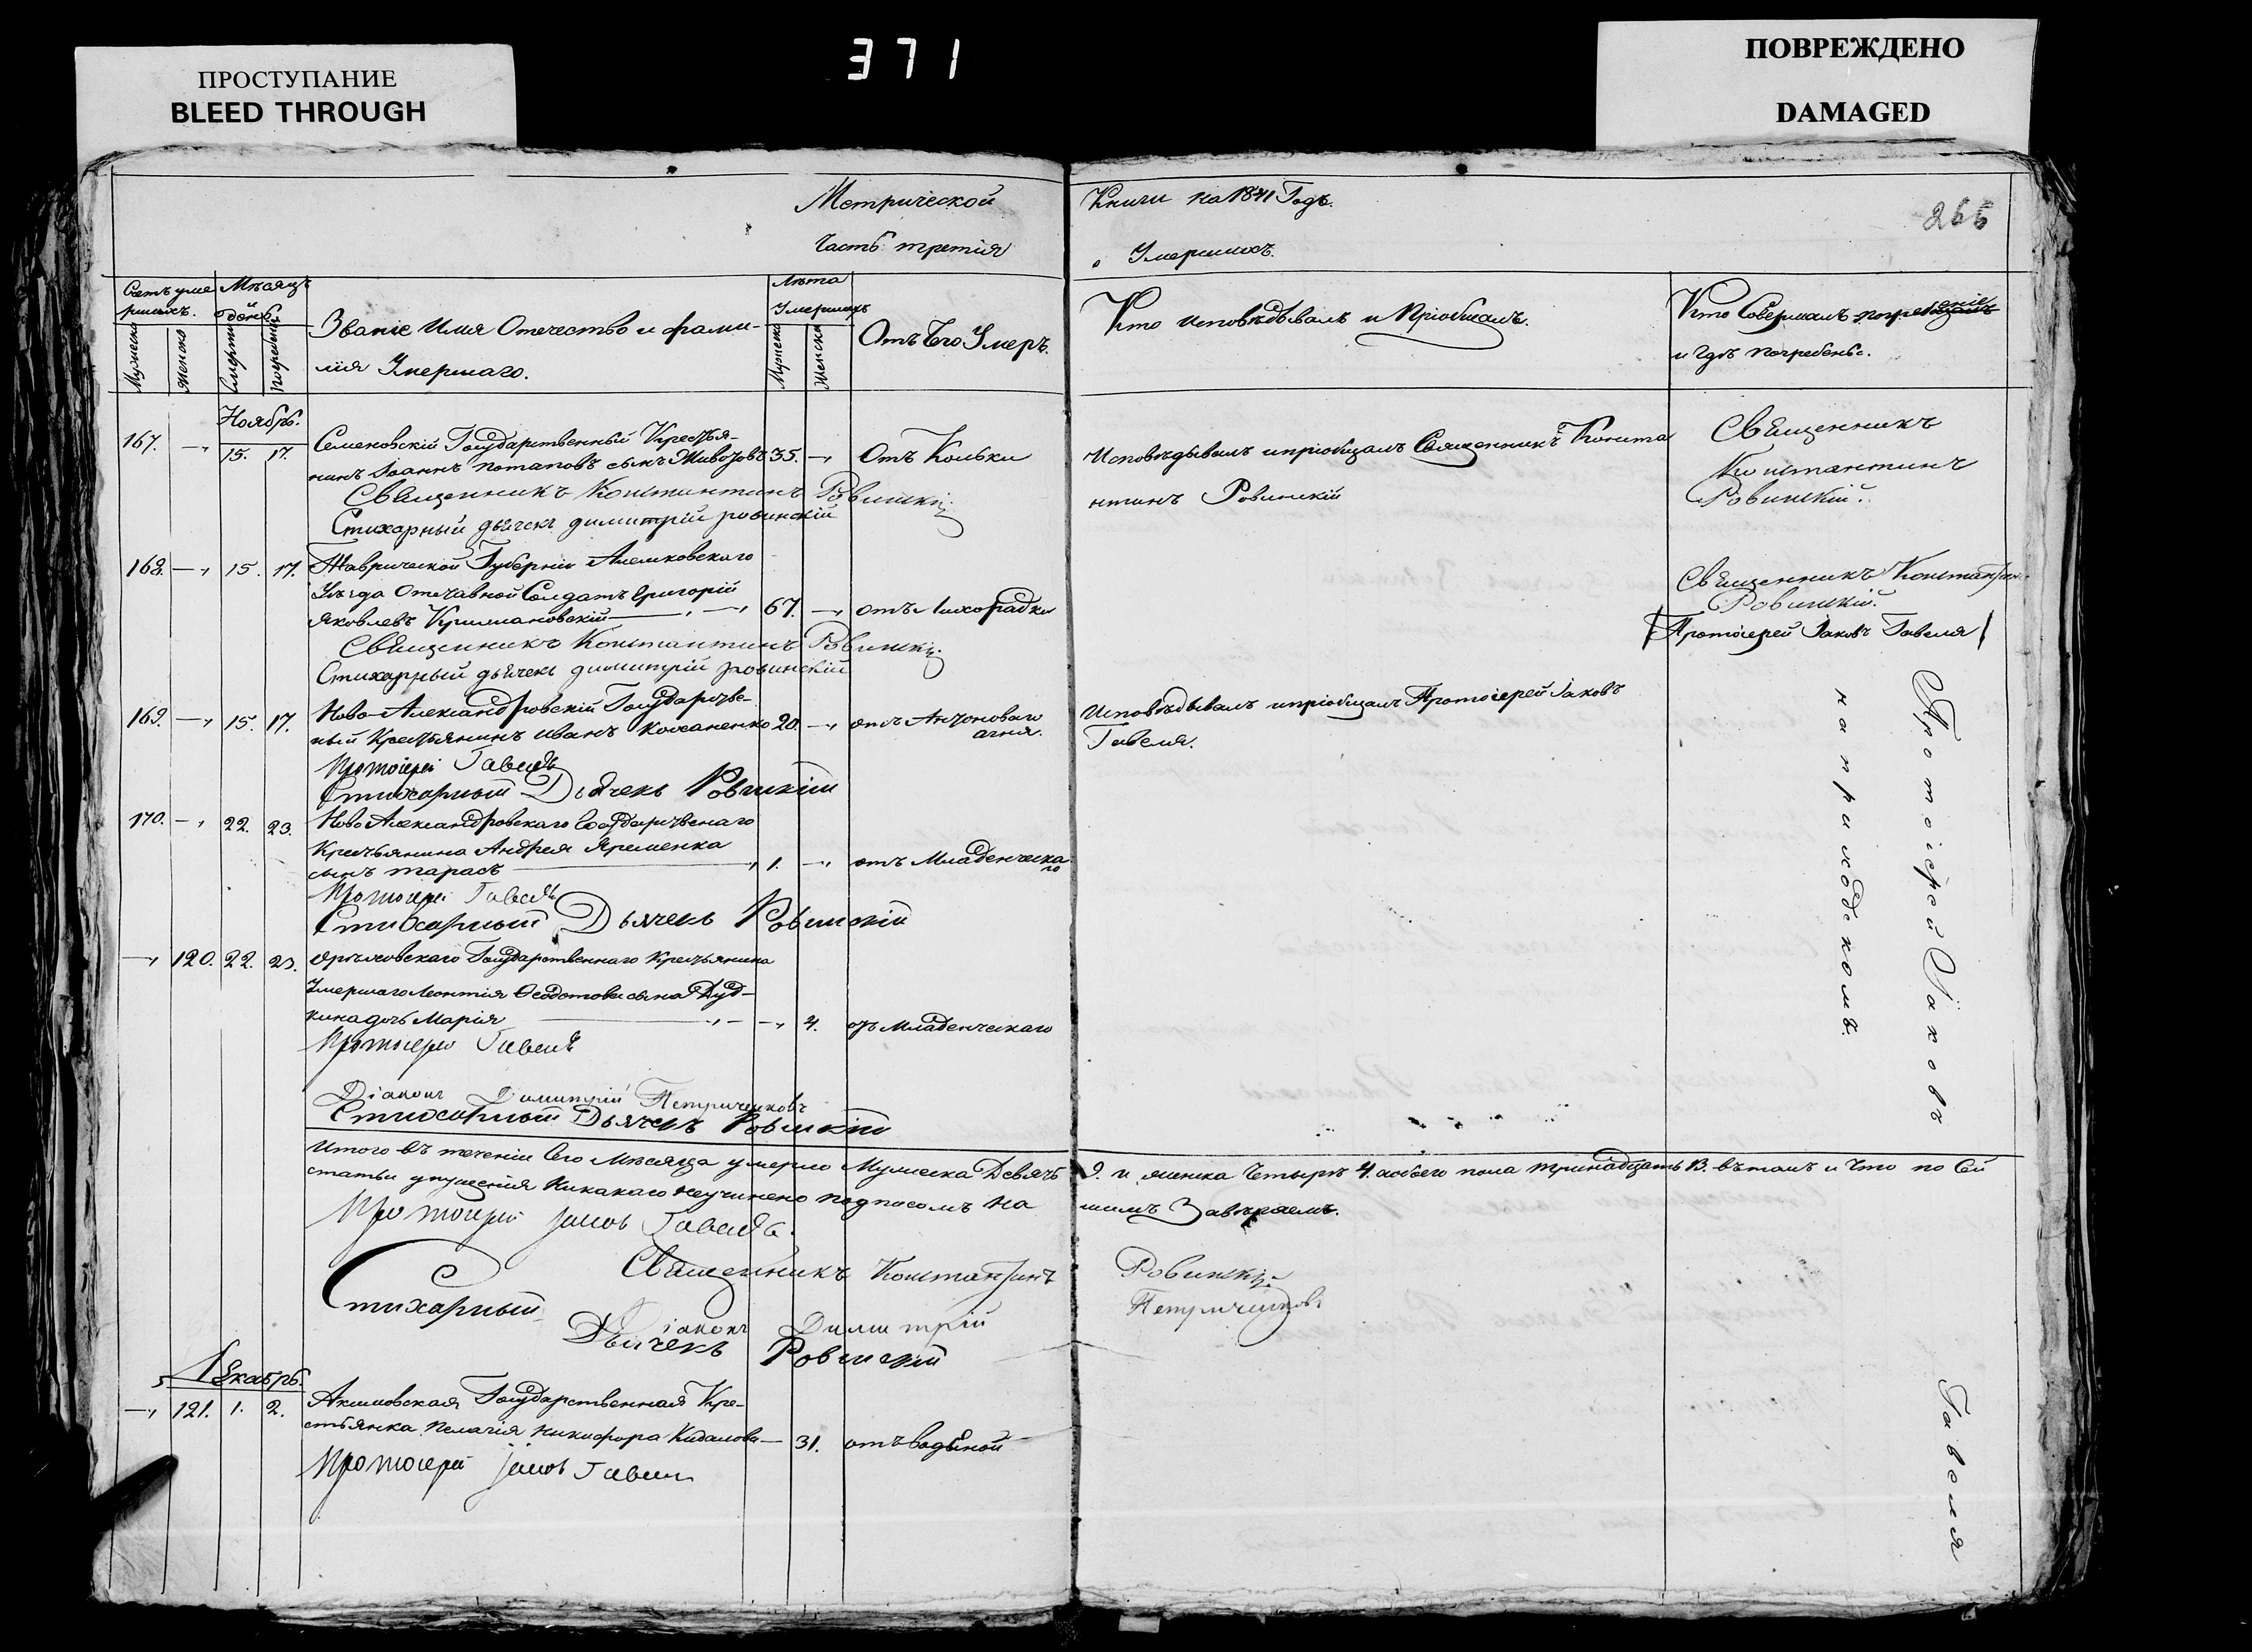 371
ПРОСТУПАНИЕ
BLEED THROUGH
ПОВРЕЖДЕНО
DAMAGED
Метрической
Часть третія
Книги на 1841 Годъ.
о Умершихъ.
266
Счетъ умершихъ.
Мужеска
Женска
Мѣсяцъ и день
Смерти
Погребенія
Званіе Имя Отечество и фами-
лія Умершаго.
Лѣта Умершихъ
Мужеска
Женска
Отъ Чего Умеръ.
Кто исповѣдывалъ и Пріобщалъ.
Кто Совершалъ погребеніе
и гдѣ погребены.
Ноябрь.
167. — 15. 17. Семеновскій Государственный Крестья-
нинъ Іоаннъ Потаповъ сынъ 35. — Отъ Кольки
Исповѣдывалъ и пріобщалъ Священникъ Конста
нтинъ Ровинскій
Священникъ
Константинъ
Ровинскій.
Священникъ Константинъ Ровинскій
Стихарный дьячекъ димитрій ровинскій
168. — 15. 17. Таврической Губерніи
Уѣзда Отставной Солдатъ Григорій
Яковлевъ 67. — отъ Лихорадки
Священникъ Константинъ
Ровинскій.
Протоіерей Іаковъ Гавеля
Священникъ Константинъ Ровинскій
Стихарный дьячекъ димитрій ровинскій
169. — 15. 17. Ново-Александровскій Государстве-
ный Крестьянинъ Иванъ 20. — отъ Антоноваго
огня.
Исповѣдывалъ и пріобщалъ Протоіерей Іаковъ
Гавеля.
Протоіерей Гавеля
Стихарный Дьячекъ Ровинскій
170. — 22. 23. Ново Александровскаго Государственаго
Крестьянина Андрея Яременка
сынъ тарасъ 1. — отъ Младенческа
го
Протоіерей Гавеля
Стихарный Дьячекъ Ровинскій
— 120. 22. 23. Государственнаго Крестьянина
Умершаго Леонтія Ѳеодотова сына Дуд-
кина дочь Марія — 4. отъ Младенческаго
Протоіерей Гавеля
Діаконъ Димитрій Петриченковъ
Стихарный Дьячекъ Ровинскій
Протоіерей Іаковъ
на приходскомъ.
Гавеля
Итого въ теченіи Сего Мѣсяца умерло Мужеска Девять 9. и женска Четыре 4. обоего пола тринадцать 13. въ томъ и что по Сей
статьи упущенія Никакаго неучинено подписомъ На
шимъ Завѣряемъ.
Протоіерей Іаковъ Гавеля.
Священникъ Константинъ Ровинскій
Діаконъ Димитрій Петриченковъ
Стихарный Дьячекъ Ровинскій
Декабрь.
— 121. 1. 2. Акимовская Государственная Кре-
стьянка Пелагія Никифора — 31. отъ водяной
Протоіерей Іаковъ Гавеля